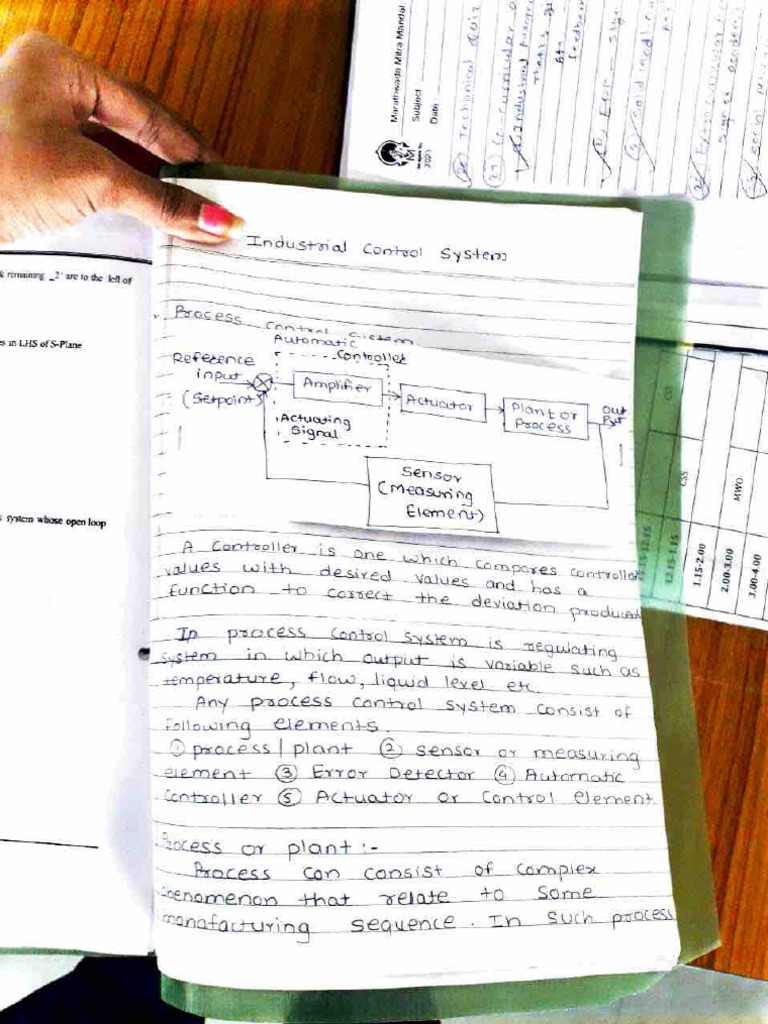 Marathwada Mitra Mandal
Subject
Date
2021
Industrial Control System
Process Control System
Automatic
Controller
Reference
input
(Setpoint)
Amplifier
Actuating
Signal
Actuator
Plant or
Process
out
Put
Sensor
(Measuring
Element)
A Controller is one which compares controlled
values with desired values and has a
function to correct the deviation produced
In process control system is regulating
system in which output is variable such as
temperature, flow, liquid level etc.
Any process control system consist of
following elements.
① process/plant ② sensor or measuring
element ③ Error Detector ④ Automatic
Controller ⑤ Actuator or Control element
Process or plant:-
Process can consist of complex
phenomenon that relate to some
manafacturing sequence. In such process
& remaining _2' are to the left of
es in LHS of S-Plane
system whose open loop
CSS
MWO
12.15-1.15
1.15-2.00
2.00-3.00
3.00-4.00